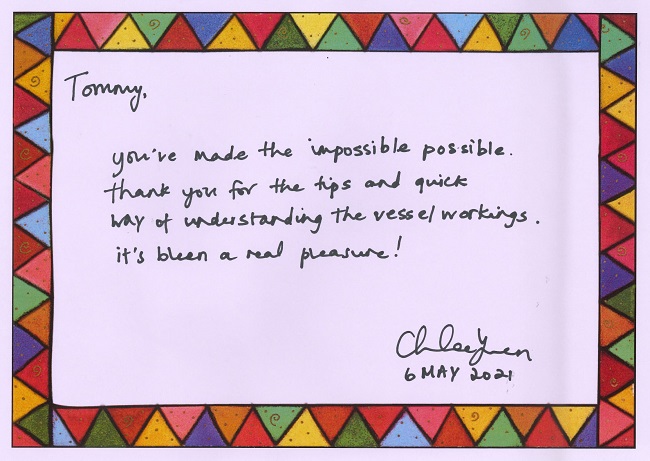 Tommy,
you've made the impossible possible.
thank you for the tips and quick
way of understanding the vessel workings.
it's bleen a real pleasure!
6 MAY 2021